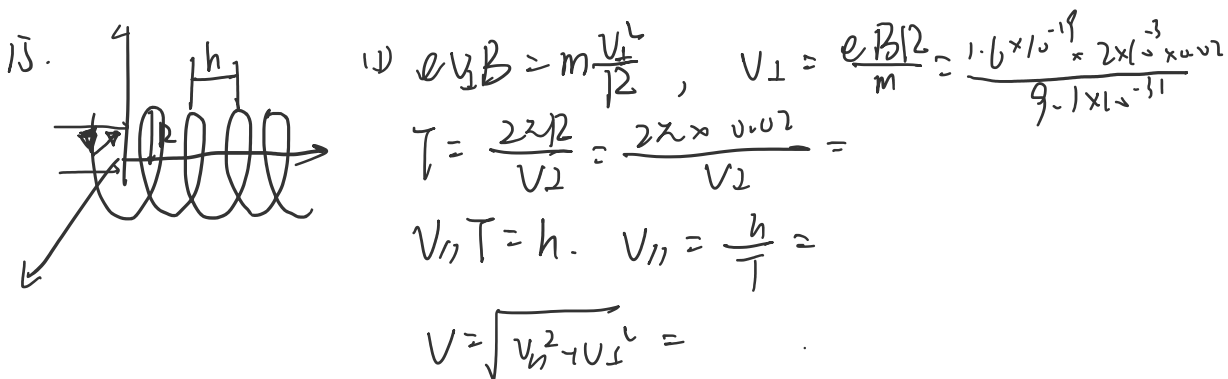 15.
h
R
(1) ev⊥B = m v⊥²/R , v⊥ = eBR/m = 1.6×10⁻¹⁹ × 2×10⁻³ × 0.02 / 9.1×10⁻³¹
T = 2πR/v⊥ = 2π × 0.02/v⊥ =
v∥T = h. v∥ = h/T =
v = √(v∥² + v⊥²) =